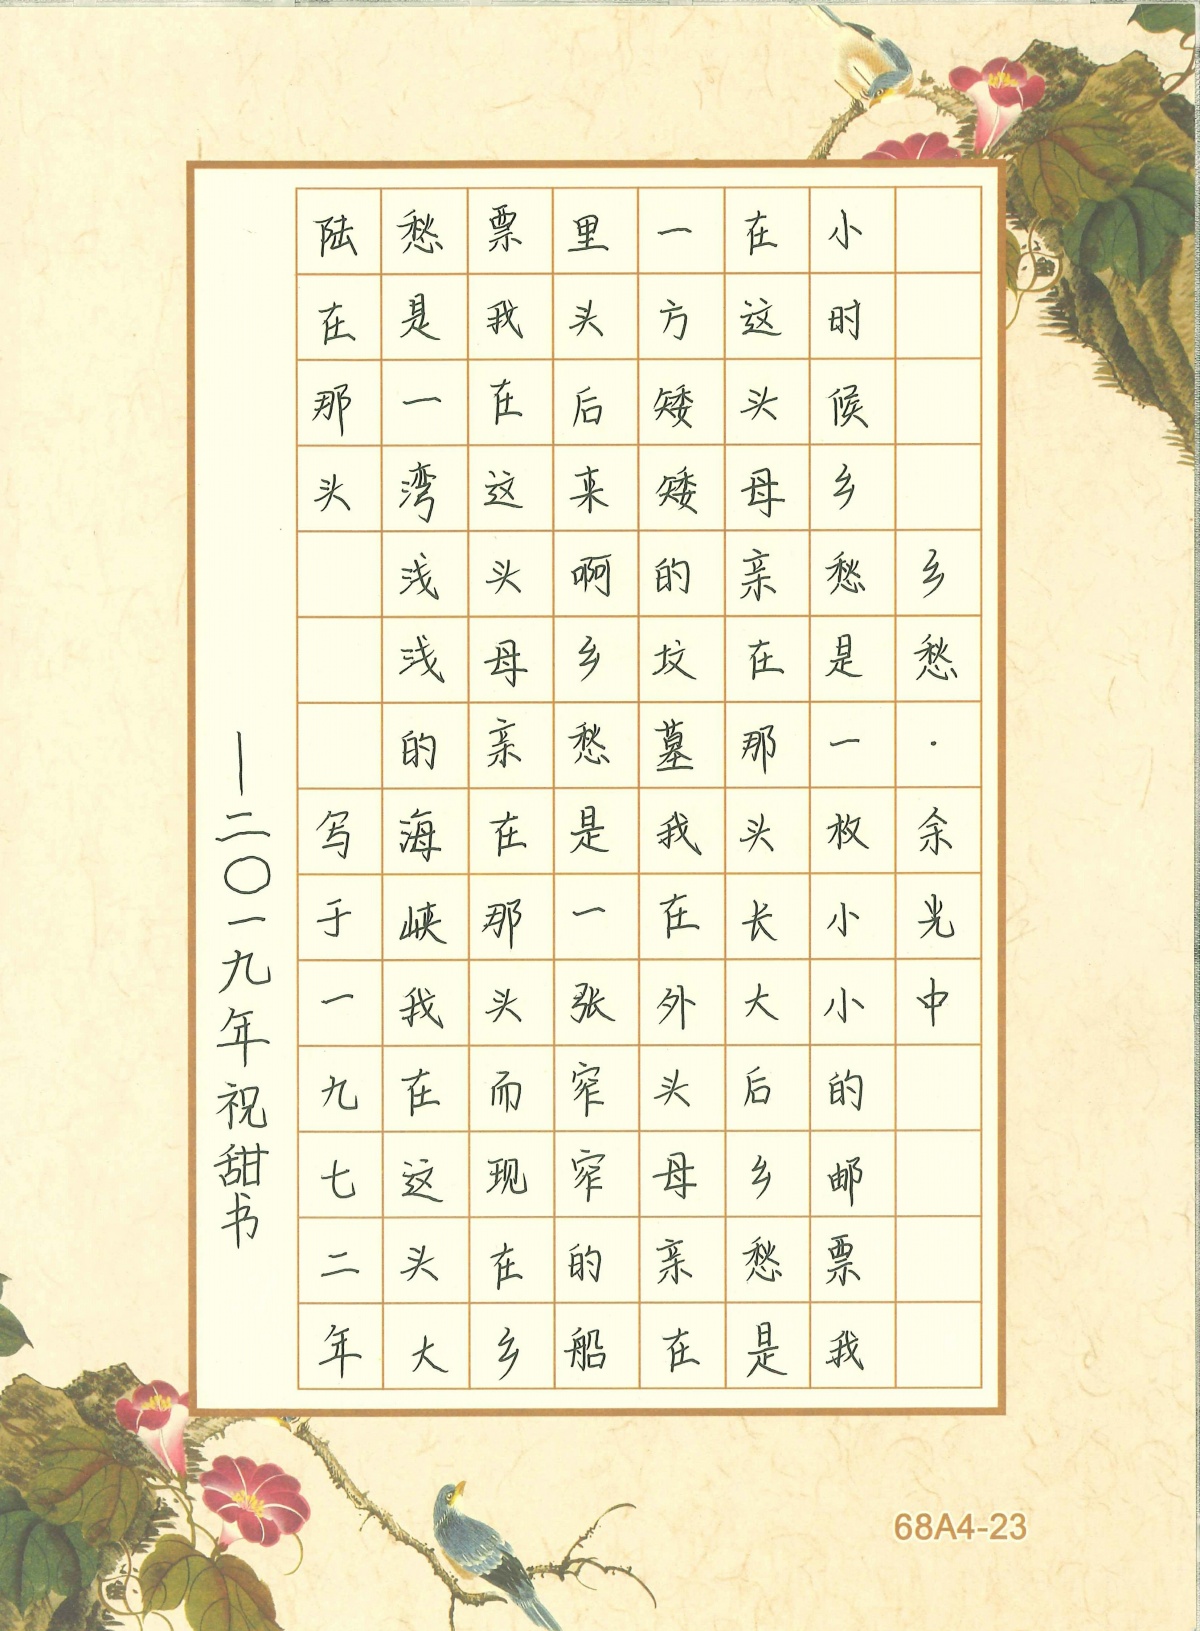 乡愁·余光中
小时候乡愁是一枚小小的邮票我
在这头母亲在那头长大后乡愁是
一方矮矮的坟墓我在外头母亲在
里头后来啊乡愁是一张窄窄的船
票我在这头母亲在那头而现在乡
愁是一湾浅浅的海峡我在这头大
陆在那头写于一九七二年
—二〇一九年祝甜书
68A4-23